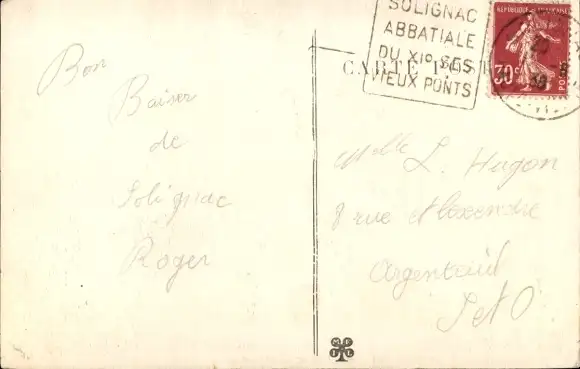 SOLIGNAC
ABBATIALE
DU XIº SES
VIEUX PONTS
REPUBLIQUE FRANÇAISE
30c
POSTES
CARTE POSTALE
Bon
Baiser
de
Solignac
Roger
Melle L. Hugon
8 rue Alexendre
Argenteuil
S et O